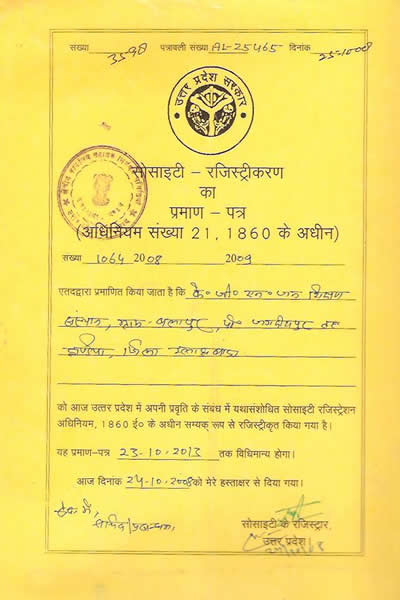 संख्या 3598 पत्रावली संख्या AL-25465 दिनांक 25-10-08
उत्तर प्रदेश सरकार
सोसाइटी – रजिस्ट्रीकरण
का
प्रमाण – पत्र
(अधिनियम संख्या 21, 1860 के अधीन)
संख्या 1064 2008 2009
एतदद्वारा प्रमाणित किया जाता है कि के० जी० एन० जन शिक्षण
संस्थान, ग्राम- बलापुर, पो० जगदीशपुर
हण्डिया, जिला इलाहाबाद
को आज उत्तर प्रदेश में अपनी प्रवृति के संबंध में यथासंशोधित सोसाइटी रजिस्ट्रेशन
अधिनियम, 1860 ई० के अधीन सम्यक् रूप से रजिस्ट्रीकृत किया गया है।
यह प्रमाण–पत्र 23-10-2013 तक विधिमान्य होगा।
आज दिनांक 24-10-2008 को मेरे हस्ताक्षर से दिया गया।
सोसाइटी के रजिस्ट्रार,
उत्तर प्रदेश